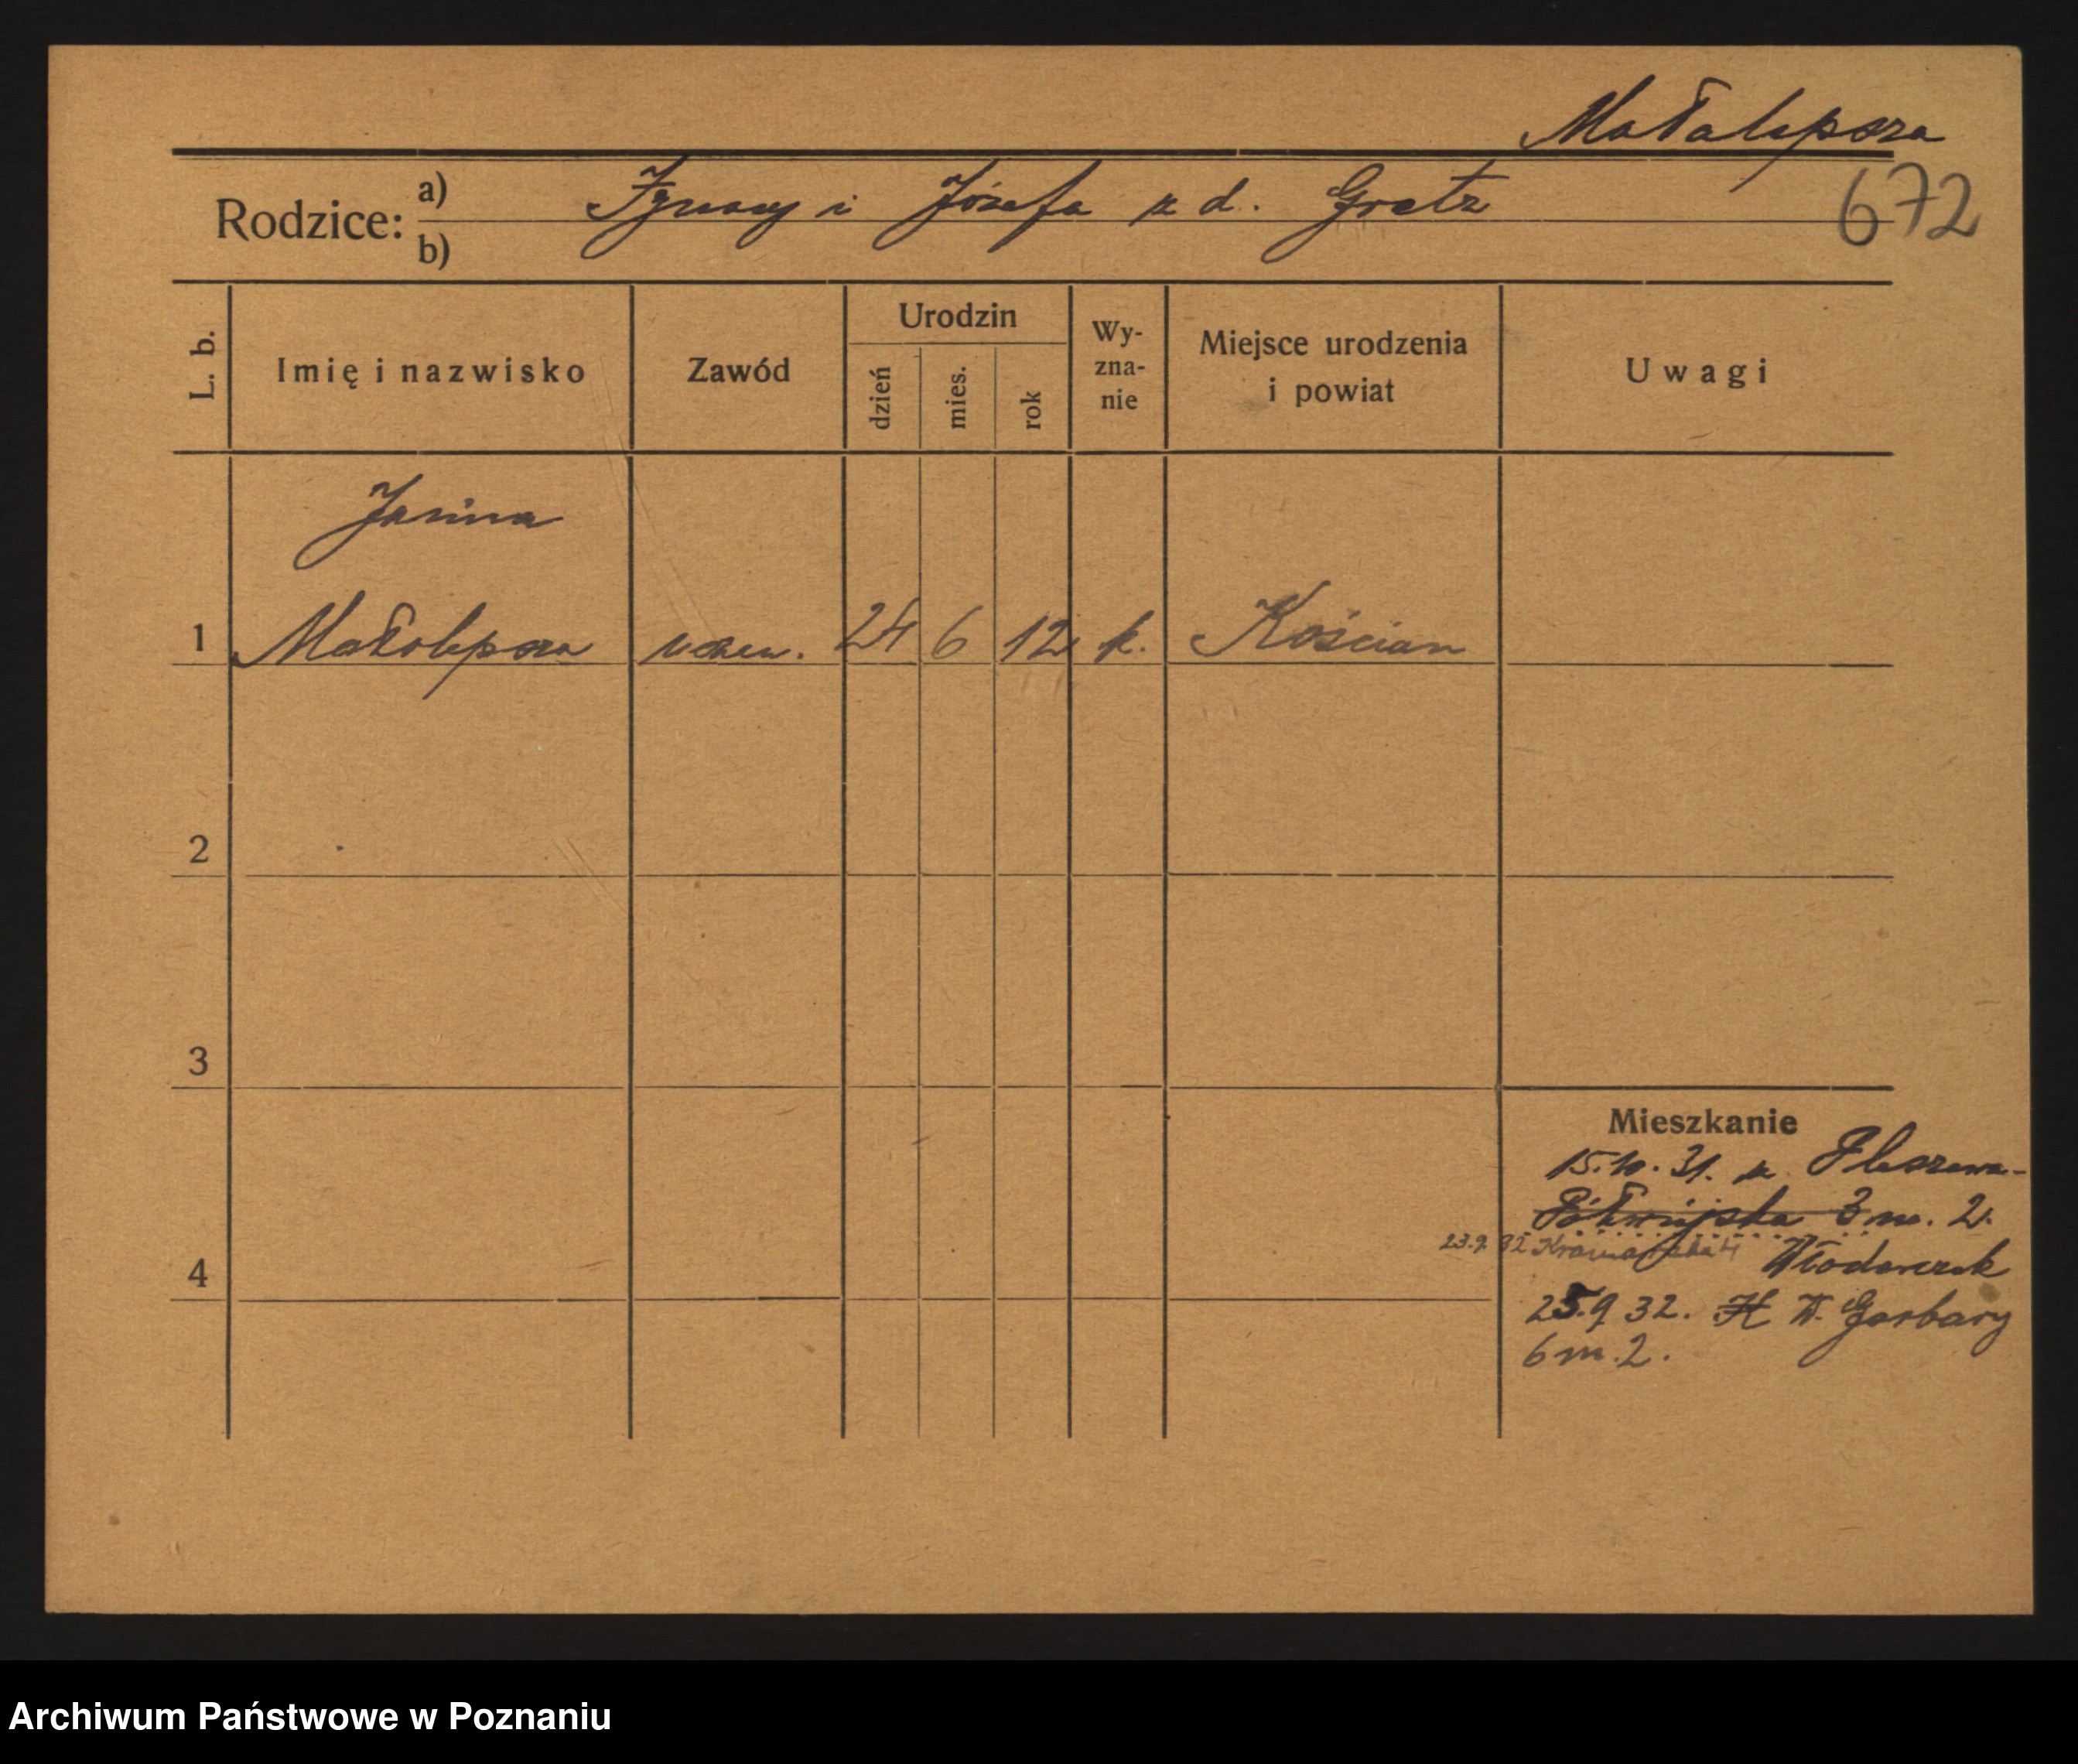 Małolepsza
672
Rodzice: a) Ignacy i Józefa z d. Gretz
b)
L. b.
Imię i nazwisko
Zawód
Urodzin
dzień
mies.
rok
Wy-
zna-
nie
Miejsce urodzenia
i powiat
Uwagi
Janina
1 Małolepsza uczen. 24 6 12 k. Kościan
2
3
4
Mieszkanie
15.10.31. z Pleszewa-
Półwiejska 3 m. 2.
23.9 32
Włodarczak
25.9 32. W. Garbary
6 m. 2.
Archiwum Państwowe w Poznaniu